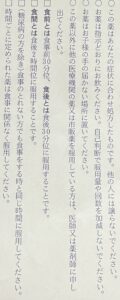 □この薬はあなたの症状に合わせ処方したものです。他の人には譲らないでください。
□お薬は指示どおりにお飲みください。自己判断で服用量や回数を加減しないでください。
□お薬はお子様の手の届かない場所に置いてください。
□この薬以外に他の医療機関の薬又は市販薬を服用している方は、医師又は薬剤師に申し
出てください。
□食前とは食事前30分、食後とは食後30分に服用することです。
□食間とは食後2時間位に服用することです。
□(糖尿病の方を除き)食事のとれない方でも食事をする時と同じ時間に服用してください。
時間ごとに定められた薬は食事に関係なく服用してください。